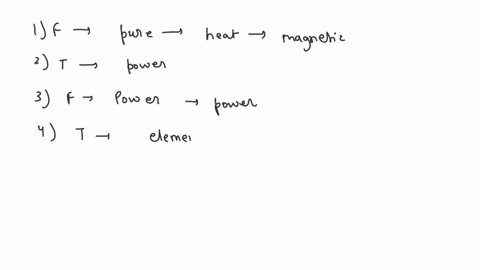 1) F → pure → heat → magnetic
2) T → power
3) F → Power → power
4) T → elemen